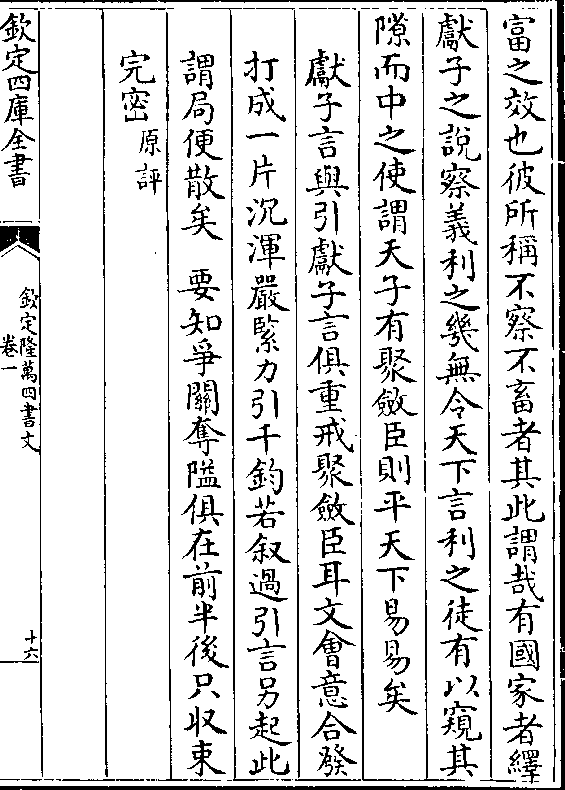 富之效也彼所稱不察不畜者其此謂哉有國家者繹
獻子之說察義利之幾無令天下言利之徒有以窺其
隙而中之使謂天子有聚斂臣則平天下易易矣
獻子言與引獻子言俱重戒聚斂臣耳文會意合發
打成一片沉渾嚴緊力引千鈞若叙過引言另起此
謂局便散矣　要知爭關奪隘俱在前半後只收束
完密 原評
欽定四庫全書
欽定隆萬四書文
卷一
十六